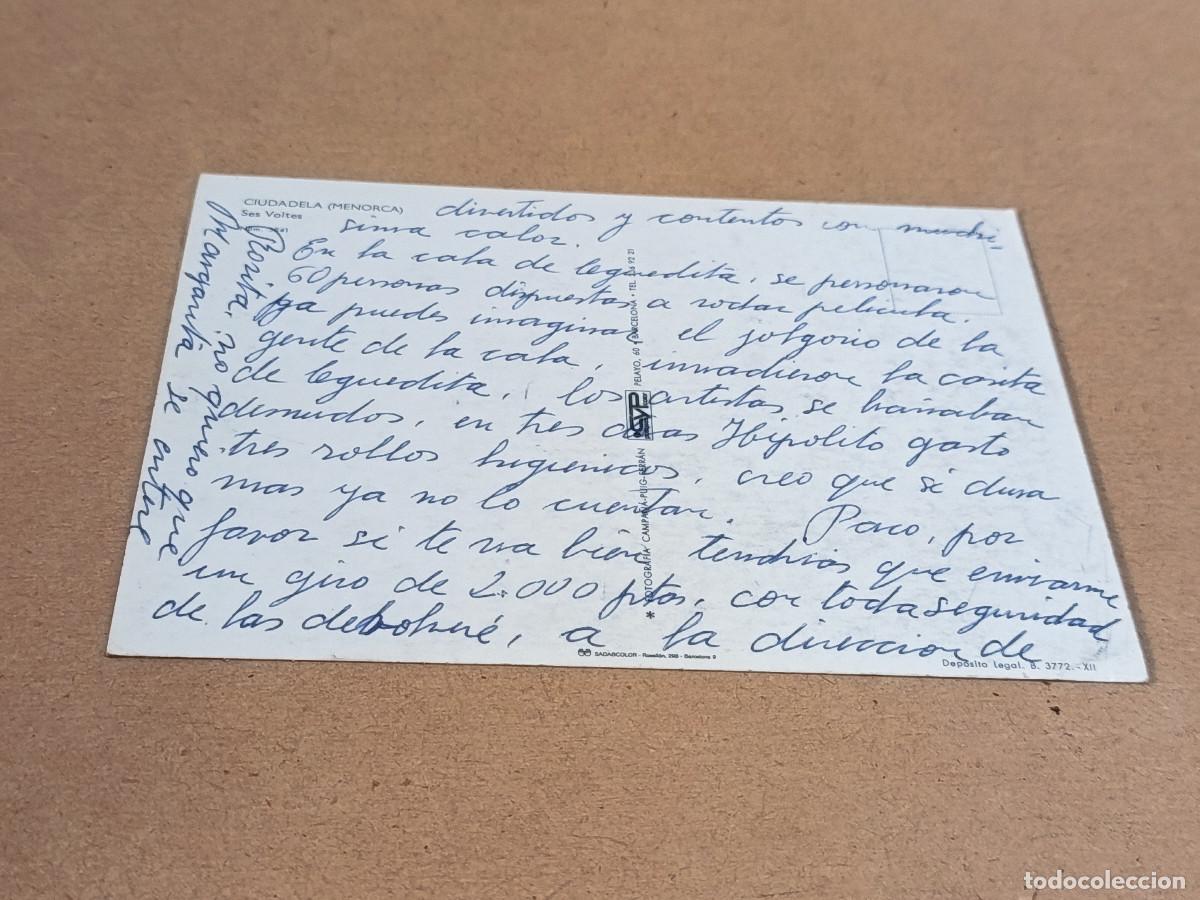 CIUDADELA (MENORCA)
Ses Voltes
divertidos y contentos con muchi-
sima calor.
En la cala de leguedita, se personaron
60 personas dispuestas a rodar pelicula.
ya puedes imaginar el jolgorio de la
gente de la cala, invadieron la casita
de leguedita, los artistas se bañaban
desnudos, en tres dias Hipolito gasto
tres rollos higienicos, creo que si dura
mas ya no lo cuentan. Paco, por
favor si te va bien tendrias que enviarme
un giro de 2.000 ptas, con toda seguridad
de las debolveré, a la direccion de
Rosita, no quiero que
Margarita se entere
* FOTOGRAFÍA CAMPAÑÁ-PUIG-FERRÁN
PELAYO, 60 • BARCELONA • TEL.
SADAGCOLOR - Rosellón, 298 - Barcelona 9
Depósito legal. B. 3772.-XII
todocoleccion